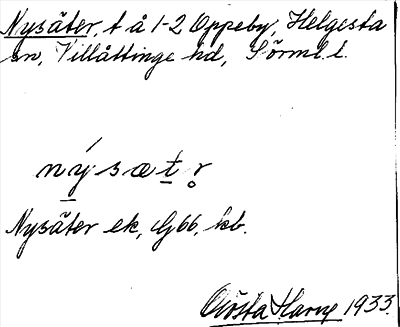 Nysäter, t å 1-2 Oppeby, Helgesta
sn, Villåttinge hd, Sörml. l.
nýsætr
Nysäter ek, G66, kb.
Gösta Harne 1933.